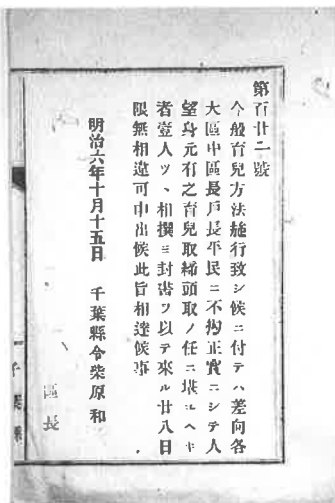 第百廿二號
今般育兒方法施行致シ候ニ付テハ差向各
大區中區長戸長平民ニ不拘正實ニシテ人
望身元有之育兒取締頭取ノ任ニ堪ユヘキ
者壹人ツヽ相撰ミ封書ヲ以テ來ル廿八日
限無相違可申出候此旨相達候事
明治六年十月十五日 千葉縣令柴原和
區長
千葉縣